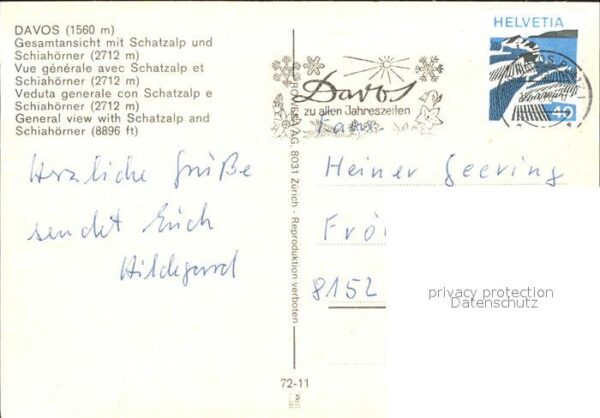 DAVOS (1560 m)
Gesamtansicht mit Schatzalp und
Schiahörner (2712 m)
Vue générale avec Schatzalp et
Schiahörner (2712 m)
Veduta generale con Schatzalp e
Schiahörner (2712 m)
General view with Schatzalp and
Schiahörner (8896 ft)
Herzliche Grüße
sendet Euch
Hildegard
AG, 8031 Zürich - Reproduktion verboten
72-11
Davos
zu allen Jahreszeiten
HELVETIA
40
Fam.
Heiner Geering
8152
privacy protection
Datenschutz